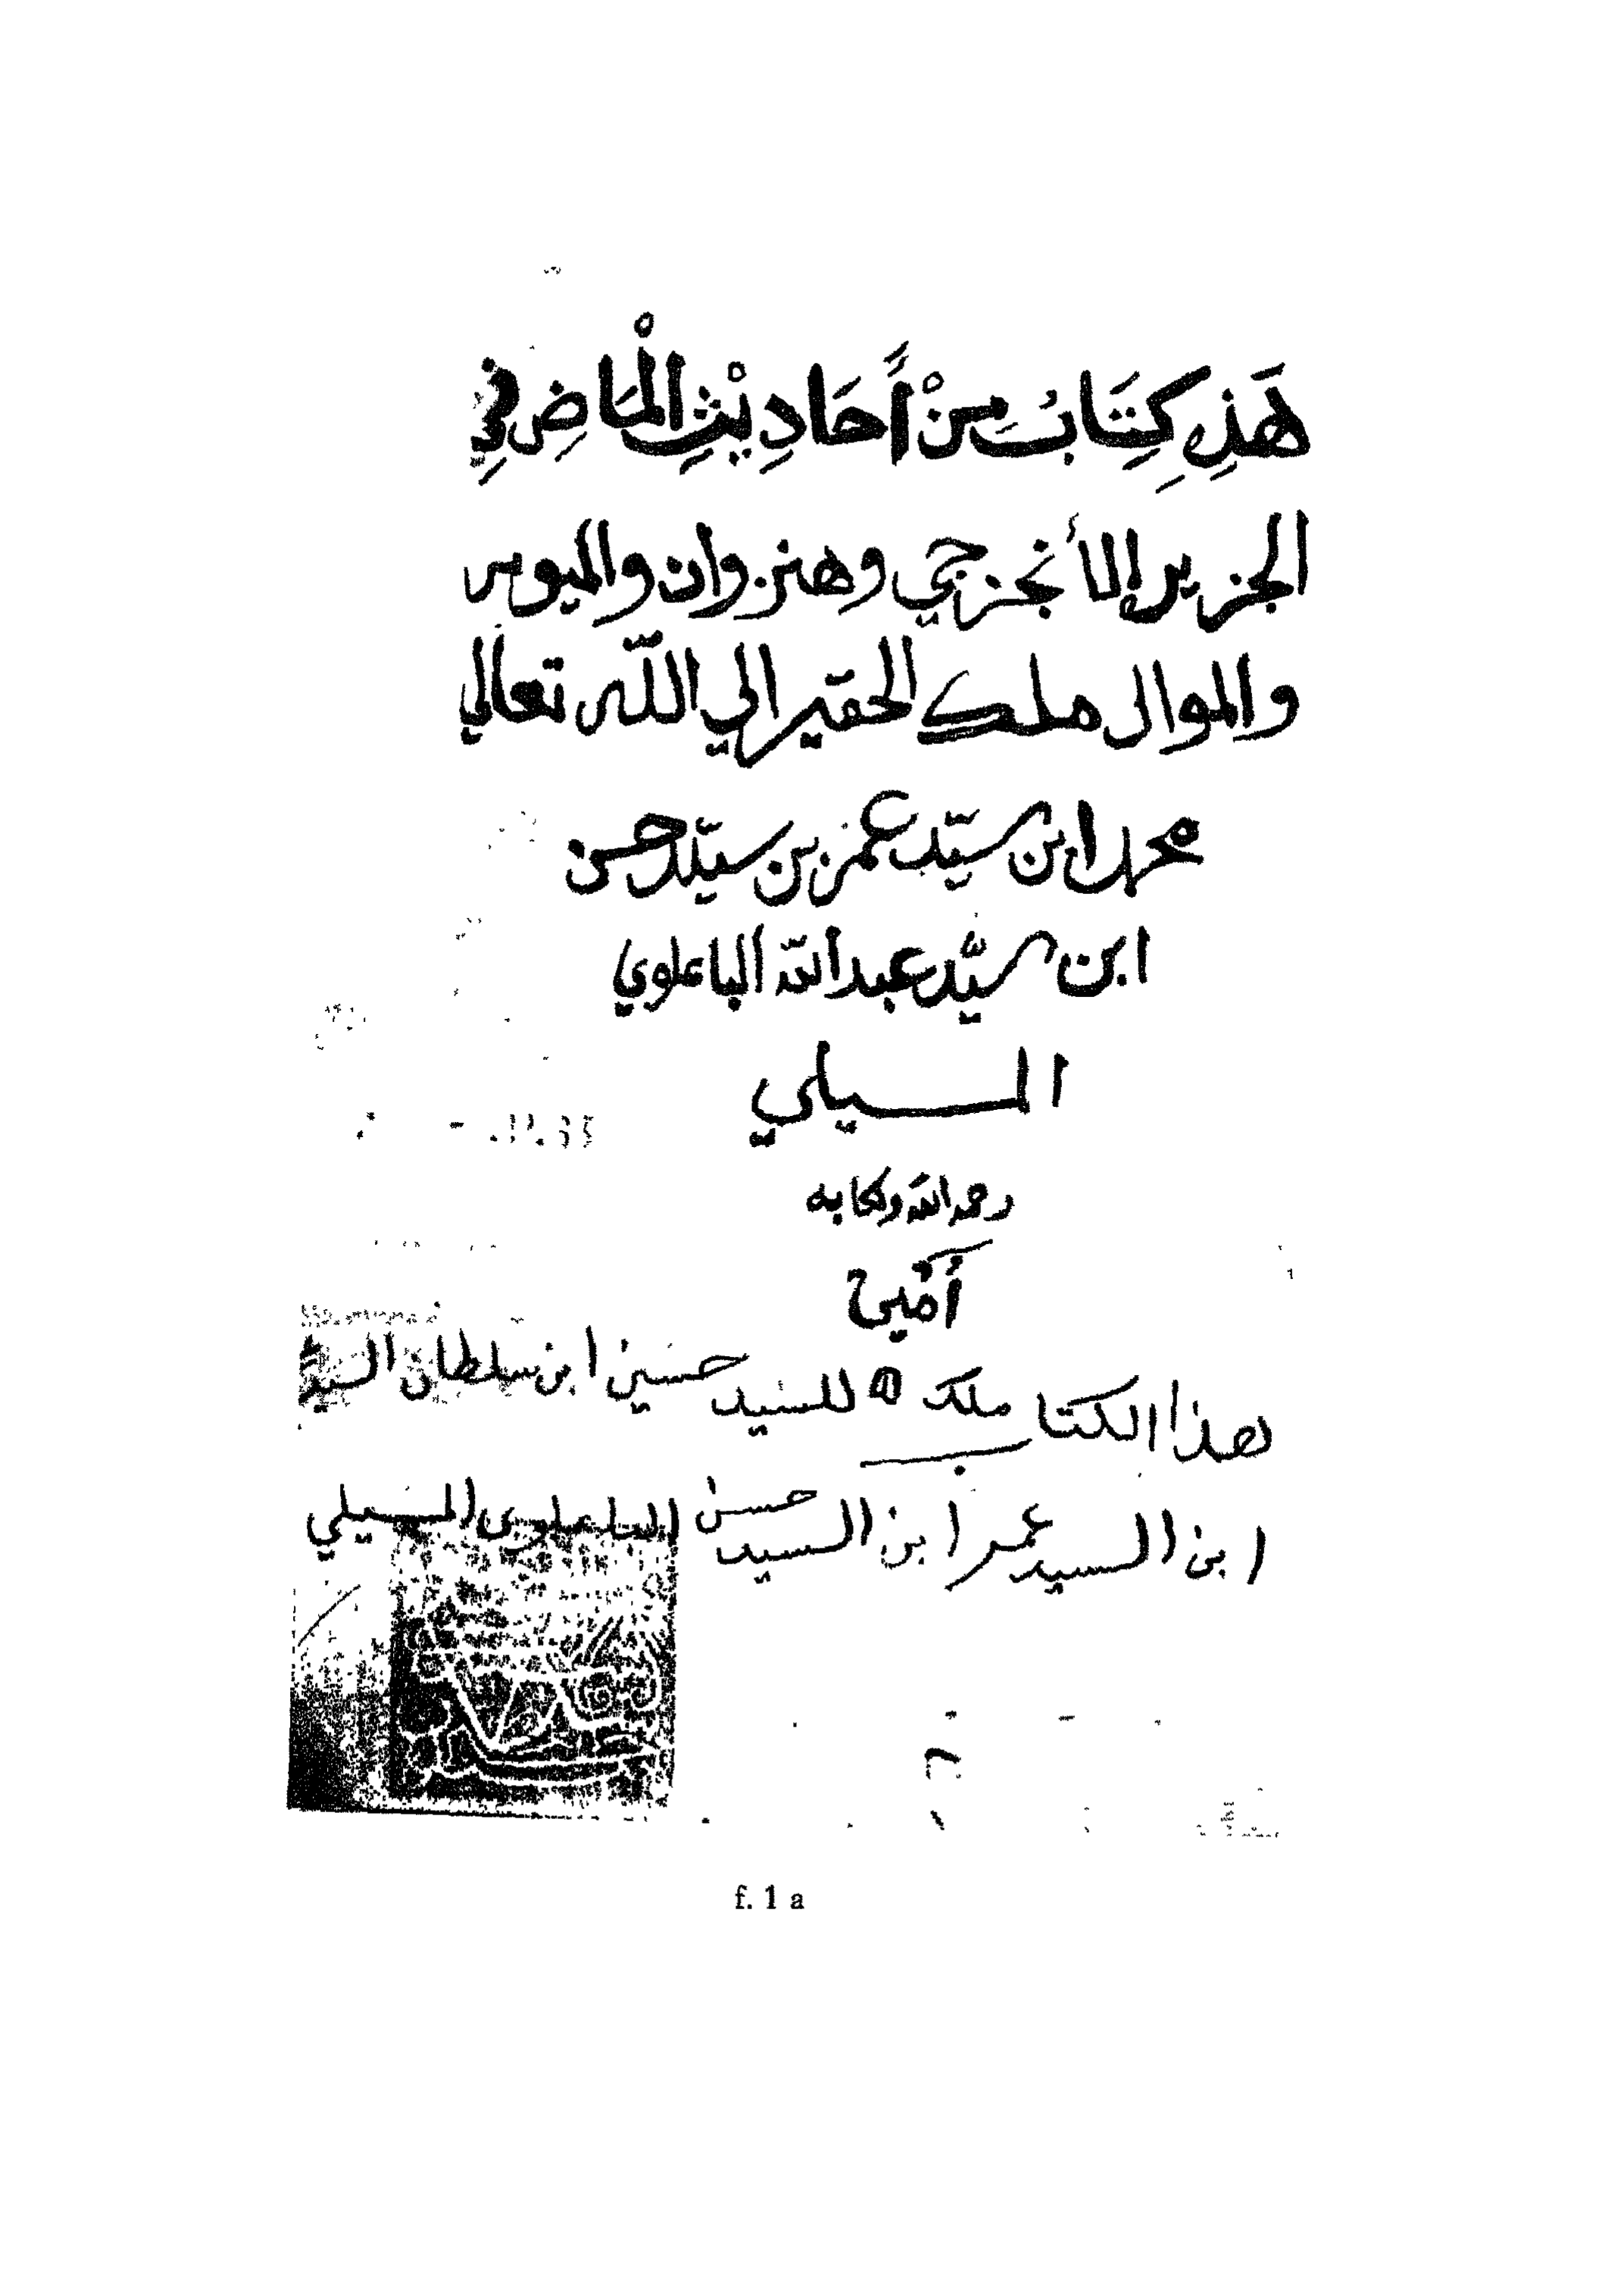 هَذِ كِتَابُ مِنْ أَحَادِيْثِ الْمَاضِ فِي
الجزير الأنجزجي وهنزوان والميوس
والموالى ملك الحقير الي الله تعالي
محمد ابن سيّد عمر بن سيّد حسن
ابن سيّد عبد الله الباعلوي
المسيلي
رحمه الله وكابه
أمين
هذا الكتاب ملك للسيد حسين ابن سلطان السيد
ابن السيد عمر ابن السيد حسن الباعلوي المسيلي
f. 1 a